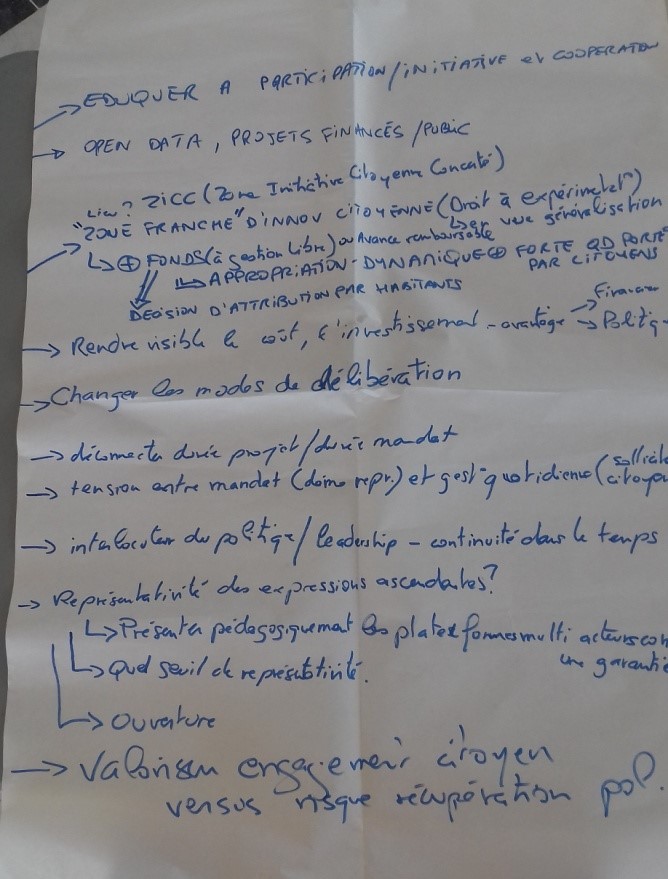 → EDUQUER A PARTICIPATION/INITIATIVE et COOPERATION
→ OPEN DATA, PROJETS FINANCÉS/PUBLIC
Lieu? ZICC (Zone Initiative Citoyenne Concerté)
→ "ZONE FRANCHE" D'INNOV CITOYENNE (Droit à expérimenter)
↳ en vue généralisation
↳ ⊕ FONDS (à gestion libre) ou Avance remboursable
↳ APPROPRIATION - DYNAMIQUE ⊕ FORTE QD PORTÉ
PAR CITOYENS
DECISION D'ATTRIBUTION PAR HABITANTS
→ Rendre visible le coût, l'investissement - avantage → Financier
→ Politiq
→ Changer les modes de délibération
→ déconnecter durée projet/durée mandat
→ tension entre mandat (démo repr.) et gest° quotidienne (sollicit
citoye
→ interlocuteur du politiqe/leadership - continuité dans le temps
→ Représentativité des expressions ascendantes?
↳ Présenter pédagogiquement les plates formes multi acteurs com
une garantie
↳ Quel seuil de représentivité.
↳ Ouverture
→ Valoriser engagement citoyen
versus risque récupération pol.